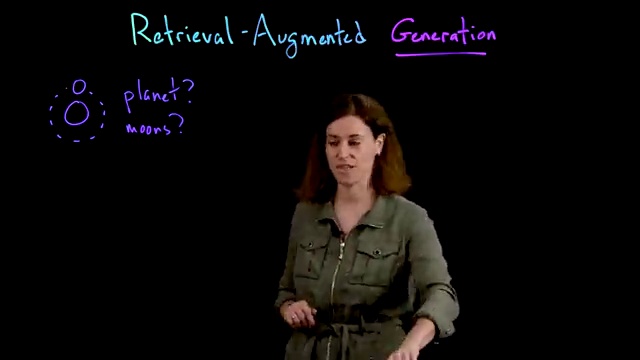 Retrieval-Augmented Generation
planet?
moons?